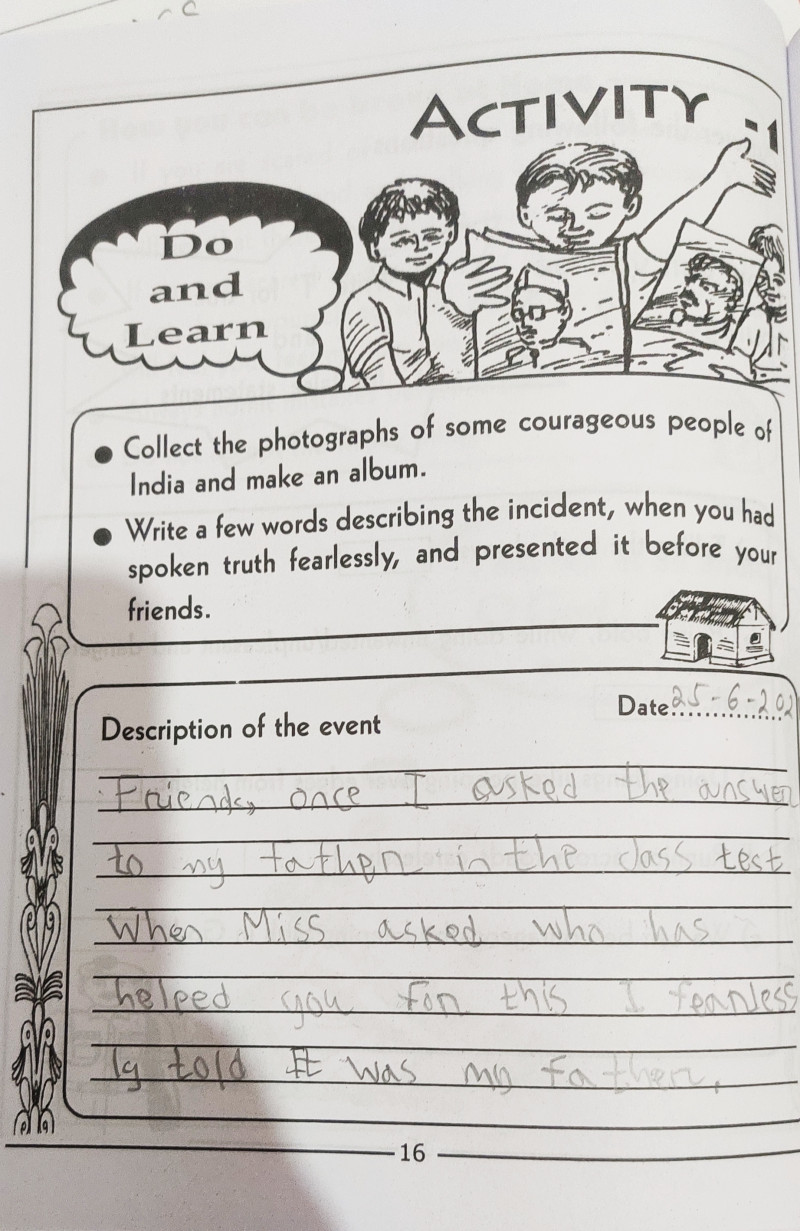 ACTIVITY -1
Do
and
Learn
● Collect the photographs of some courageous people of
India and make an album.
● Write a few words describing the incident, when you had
spoken truth fearlessly, and presented it before your
friends.
Date 25-6-202
Description of the event
Friends, once I asked the answer
to my father in the class test
When Miss asked who has
helped you for this I fearless
ly told It was my father.
16